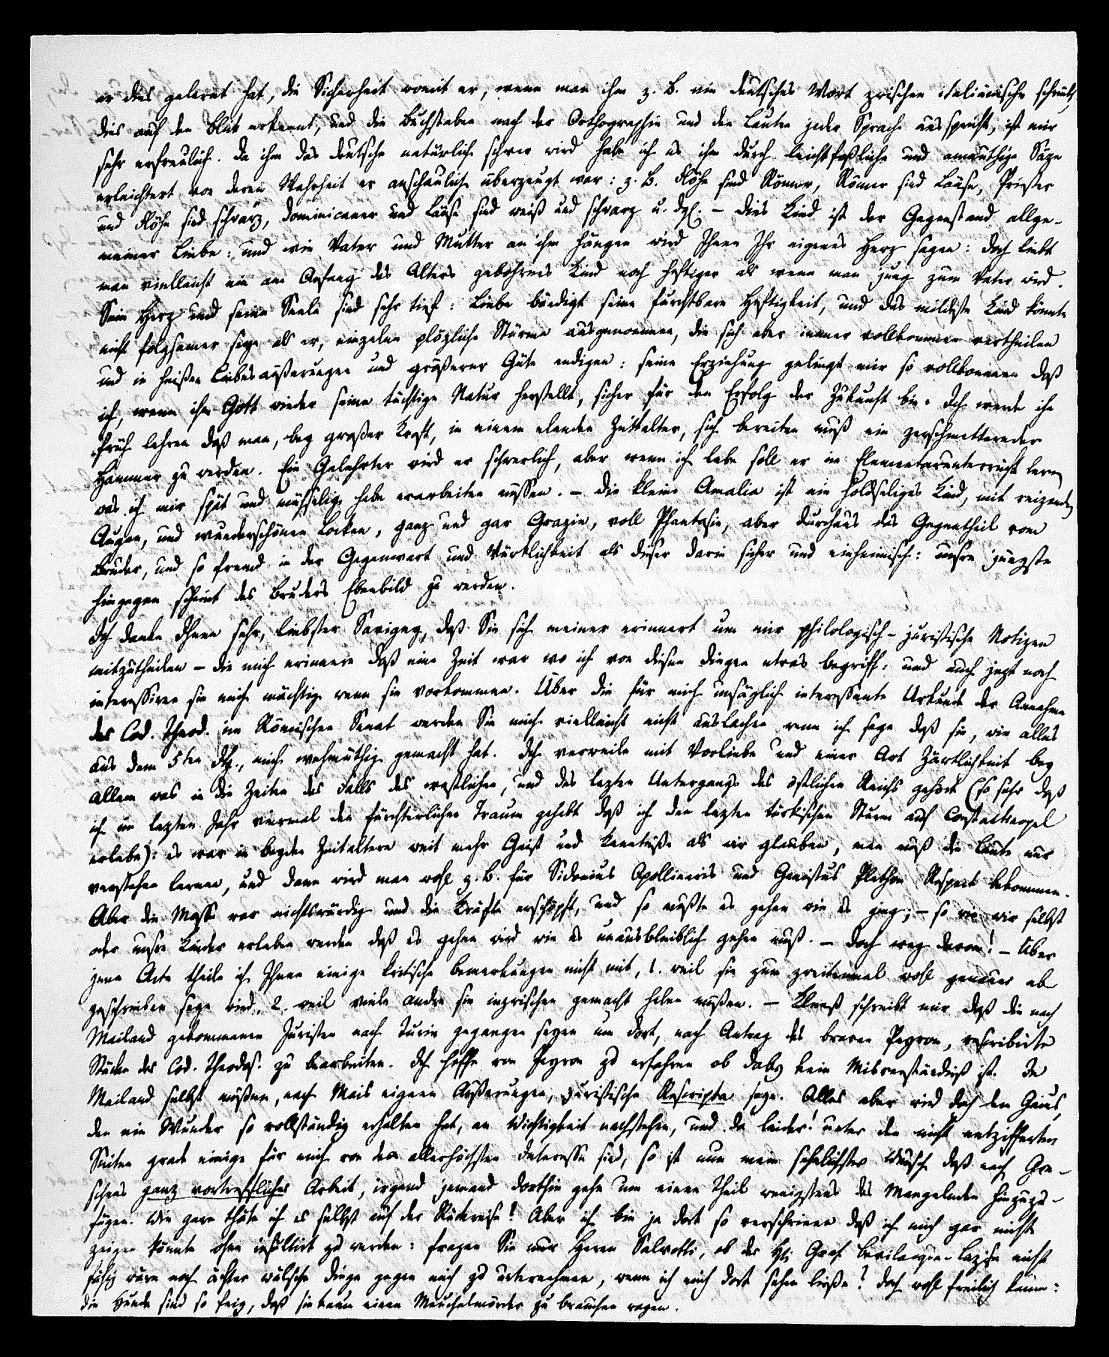 er dies gelernt hat, die Sicherheit womit er, wenn man ihm z. B. ein deutsches Wort zwischen italienische schreibt,
dies auf den Blick erkennt, und die Buchstaben nach der Orthographie und den Lauten jeder Sprache ausspricht, ist mir
sehr erfreulich. Da ihm das deutsche natürlich schwer wird habe ich es ihm durch leichtfaßliche und anmuthige Säze
erleichtert von deren Wahrheit er anschaulich überzeugt war: z. B. Flöhe sind Römer, Römer sind Läuse, Priester
und Flöhe sind schwarz, Dominicaner und Läuse sind weiß und schwarz u. dgl. – Dies Kind ist der Gegenstand allge-
meiner Liebe: und wie Vater und Mutter an ihm hängen wird Ihnen Ihr eigenes Herz sagen: doch liebt
man vielleicht ein am Anfang des Alters gebohrnes Kind noch heftiger als wenn man jung zum Vater wird.
Sein Herz und seine Seele sind sehr tief: Liebe bändigt seine furchtbare Heftigkeit, und das mildeste Kind könnte
nicht folgsamer seyn als er, einzelne plözliche Stürme ausgenommen, die sich aber immer vollkommen vertheilen
und in heißen Liebesäußerungen und größerer Güte endigen: seine Erziehung gelingt mir so vollkommen daß
ich, wenn ihm Gott wieder seine tüchtige Natur herstellt, sicher für den Erfolg der Zukunft bin. Ich werde ihn
früh lehren daß man, bey großer Kraft, in einem elenden Zeitalter, sich bereiten muß ein zerschmetternder
Hammer zu werden. Ein Gelehrter wird er schwerlich, aber wenn ich lebe soll er im Elementarunterricht lernen
was ich mir spät und mühselig habe erarbeiten müssen. – Die kleine Amalia ist ein holdseliges Kind, mit reizenden
Augen, und wunderschönen Locken, ganz und gar Grazie, voll Phantasie, aber durchaus das Gegentheil vom
Bruder, und so fremd in der Gegenwart und Würklichkeit als dieser darin sicher und einheimisch: unsre jüngste
hingegen scheint des Bruders Ebenbild zu werden.
Ich danke Ihnen sehr, liebster Savigny, daß Sie sich meiner erinnert um mir philologisch-juristische Notizen
mitzutheilen – die mich erinnern daß eine Zeit war wo ich von diesen Dingen etwas begriff: und auch jezt noch
interessiren sie mich mächtig wenn sie vorkommen. Über die für mich unsäglich interessante Urkunde der Annahme
des Cod. Theod. im Römischen Senat werden Sie mich vielleicht nicht auslachen wenn ich sage daß sie, wie alles
aus dem 5ten Jh., mich wehmüthig gemacht hat. Ich verweile mit Vorliebe und einer Art Zärtlichkeit bey
allem was in die Zeiten des Falls des westlichen, und des lezten Untergangs des östlichen Reichs gehört (so sehr daß
ich im lezten Jahr viermal den fürchterlichen Traum gehabt daß ich den lezten türkischen Sturm auf Constantinopel
erlebe): es war in beyden Zeitaltern weit mehr Geist und Kenntniße als wir glauben, man muß die Leute nur
verstehen lernen, und dann wird man wohl z. B. für Sidonius Apollinaris und Gemistus Plethon Respect bekommen.
Aber die Masse war nichtswürdig und die Kräfte erschöpft, und so mußte es gehen wie es ging; – so wie wir selbst
oder unsre Kinder erleben werden daß es gehen wird wie es unausbleiblich gehen muß. – Doch weg davon! – Über
jene Acte theile ich Ihnen einige kritische Bemerkungen nicht mit, 1. weil sie zum zweitenmal wohl genauer ab
geschrieben seyn wird, 2. weil viele andre sie inzwischen gemacht haben müßen. – Clossius schreibt mir daß die nach
Mailand gekommenen Juristen nach Turin gegangen seyen um dort, nach Antrag des braven Peyron, rescribirte
Stücke des Cod. Theodos. zu bearbeiten. Ich hoffe von Peyron zu erfahren ob dabey kein Misverständniß ist. In
Mailand selbst müßen, nach Mais eignen Äußerungen, juristische Rescripta seyn. Alles aber wird doch dem Gaius,
den ein Wunder so vollständig erhalten hat, an Wichtigkeit nachstehen, und da leider! unter den nicht entzifferten
Seiten grade einige für mich von dem allerhöchsten Interesse sind, so ist nun mein sehnlichster Wunsch daß nach Gö-
schens ganz vortrefflicher Arbeit, irgend jemand dorthin gehe um einen Theil wenigstens des Mangelnden hinzuzu-
fügen. Wie gern thäte ich es selbst auf der Rückreise! Aber ich bin ja dort so verschrieen daß ich mich gar nicht
zeigen könnte ohne insultirt zu werden: fragen Sie nur Herrn Salvotti, ob der H. Graf Bevilacqua Lazise nicht
fähig wäre noch ächter wälsche Dinge gegen mich zu unternehmen, wenn ich mich dort sehen ließe? Doch wohl freilich kaum:
die Hunde sind so feig, daß sie kaum einen Meuchelmörder zu brauchen wagen.